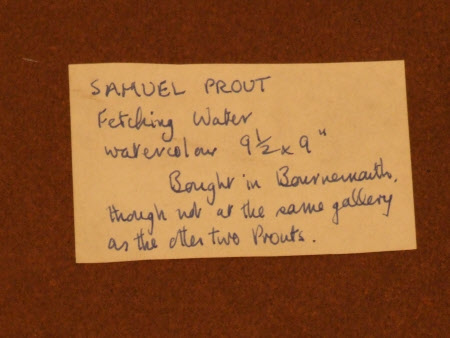 SAMUEL PROUT
Fetching Water
watercolour 9½ x 9"
Bought in Bournemouth,
though not at the same gallery
as the other two Prouts.